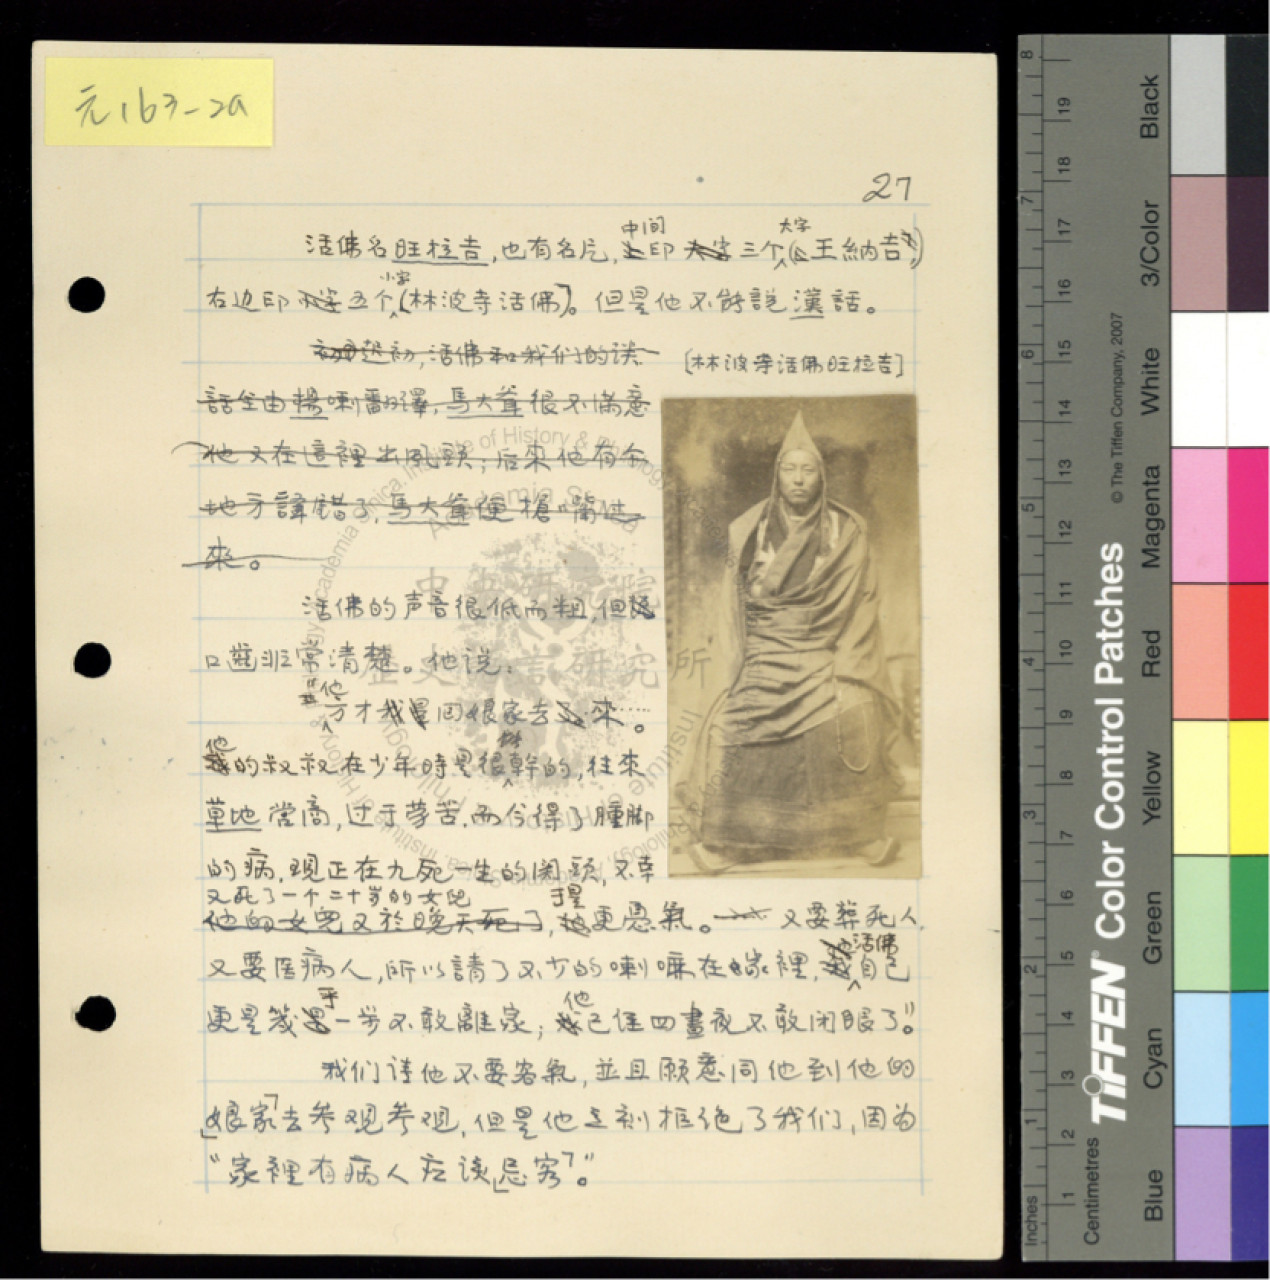 元163-2a
27
活佛名旺拉吉，也有名片，中间印三个大字(王納吉)
右边印五个小字(林波寺活佛)。但是他不能說漢話。
初,活佛和我们的谈
[林波寺活佛旺拉吉]
話全由楊喇翻譯，馬大爺很不滿意
他又在這裡出風頭；后來他有个
地方譯錯了，馬大爺便搶嘴
來。
活佛的声音很低而粗，但
口齒非常清楚。他说：
“他方才同娘家去來……。
他的叔叔在少年時是很能幹的，往來
草地當商，过于劳苦，而今得了腫脚
的病，現正在九死一生的関頭，不幸
又死了一个二十岁的女兒
他的女兒又於晚天死了，于是更愚氣。又要葬死人
又要医病人，所以請了不少的喇嘛在家裡，活佛自己
更是幾乎一步不敢離家；他已住四晝夜不敢闭眼了”。
我们请他不要客氣，並且願意同他到他的
「娘家」去参观参观，但是他立刻拒绝了我们，因为
“家裡有病人应该「忌客」”。
中央研究院
歷史語言研究所
Institute of History & Philology, Academia Sinica
Inches
1 2 3 4 5 6 7 8
Centimetres
1 2 3 4 5 6 7 8 9 10 11 12 13 14 15 16 17 18 19
TIFFEN® Color Control Patches
© The Tiffen Company, 2007
Blue
Cyan
Green
Yellow
Red
Magenta
White
3/Color
Black